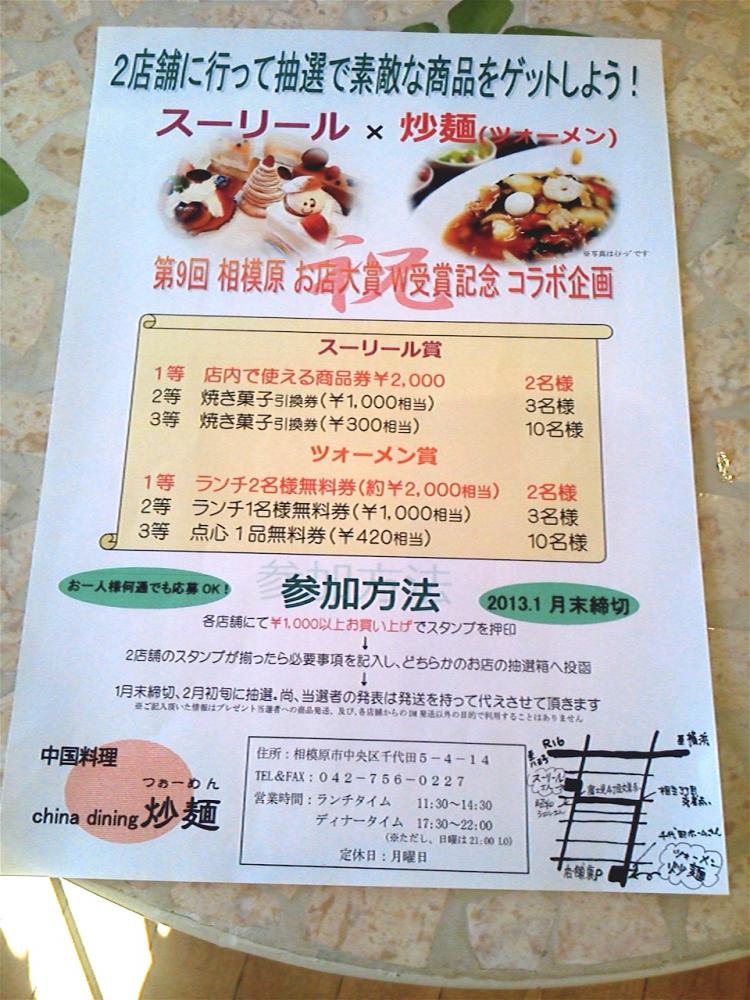 2店舗に行って抽選で素敵な商品をゲットしよう！
スーリール × 炒麺(ツォーメン)
※写真はｲﾒｰｼﾞです
祝
第9回 相模原 お店大賞 W受賞記念 コラボ企画
スーリール賞
1等 店内で使える商品券￥2,000 2名様
2等 焼き菓子引換券(￥1,000相当) 3名様
3等 焼き菓子引換券(￥300相当) 10名様
ツォーメン賞
1等 ランチ2名様無料券(約￥2,000相当) 2名様
2等 ランチ1名様無料券(￥1,000相当) 3名様
3等 点心1品無料券(￥420相当) 10名様
お一人様何通でも応募OK！
参加方法
2013.1月末締切
各店舗にて￥1,000以上お買い上げでスタンプを押印
↓
2店舗のスタンプが揃ったら必要事項を記入し、どちらかのお店の抽選箱へ投函
↓
1月末締切、2月初旬に抽選。尚、当選者の発表は発送を持って代えさせて頂きます
※ご記入頂いた情報はプレゼント当選者への商品発送、及び、各店舗からのDM発送以外の目的で利用することはありません
中国料理
つぉーめん
china dining 炒麺
住所：相模原市中央区千代田5-4-14
TEL&FAX：042-756-0227
営業時間：ランチタイム 11:30～14:30
ディナータイム 17:30～22:00
(※ただし、日曜は21:00 LO)
定休日：月曜日
R16
至横浜
スーリール
富士見4丁目交差点
相生3丁目
交差点
千代田ホームさん
ツォーメン
炒麺
右側裏P